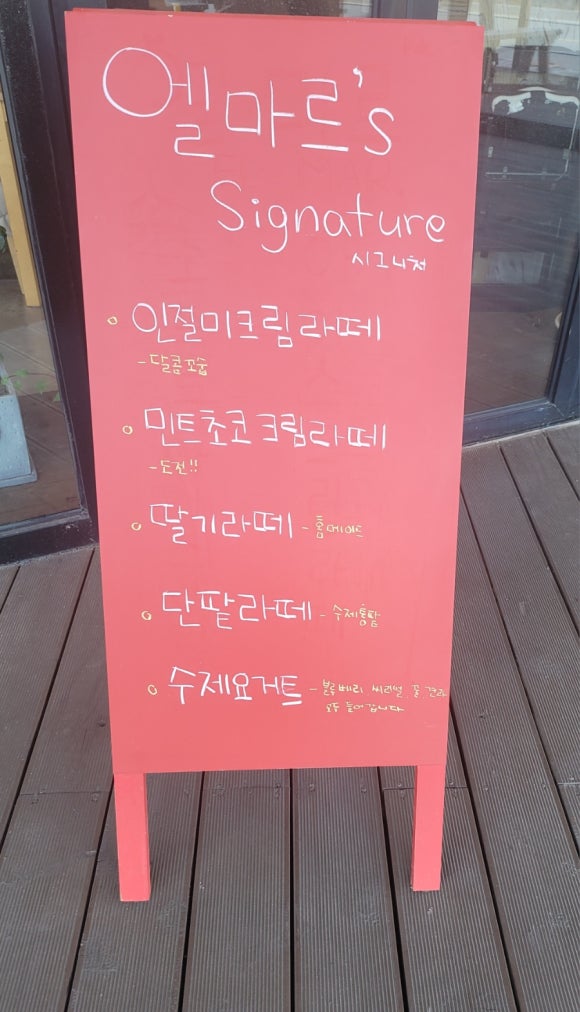 엘마르's
Signature
시그니처
인절미크림라떼
-달콤꼬숩
민트초코크림라떼
-도전!!
딸기라떼 - 홈메이드
단팥라떼 - 수제통팥
수제요거트 - 블루베리 씨리얼 꿀 견과
모두 들어갑니다